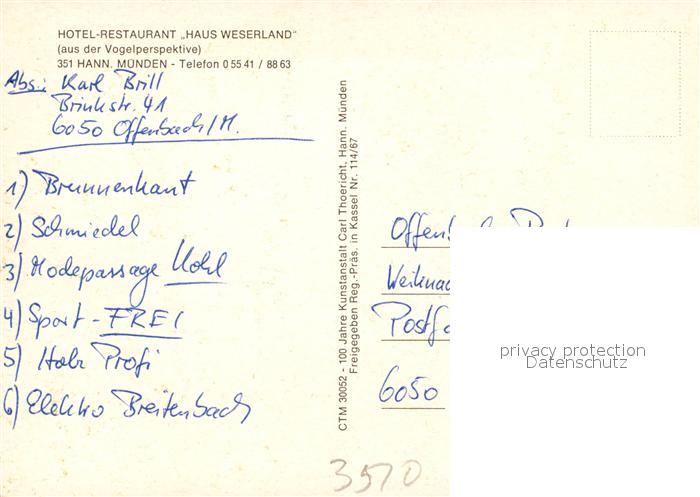 HOTEL-RESTAURANT „HAUS WESERLAND"
(aus der Vogelperspektive)
351 HANN. MÜNDEN - Telefon 0 55 41 / 88 63
Abs.: Karl Brill
Brinkstr. 41
6050 Offenbach/M.
1) Brunnenkant
2) Schmiedel
3) Modepassage Kohl
4) Sport - FREI
5) Holz Profi
6) Elektro Breitenbach
CTM 30052 - 100 Jahre Kunstanstalt Carl Thoericht, Hann. Münden
Freigegeben Reg.-Präs. in Kassel Nr. 114/67
6050
privacy protection
Datenschutz
3510